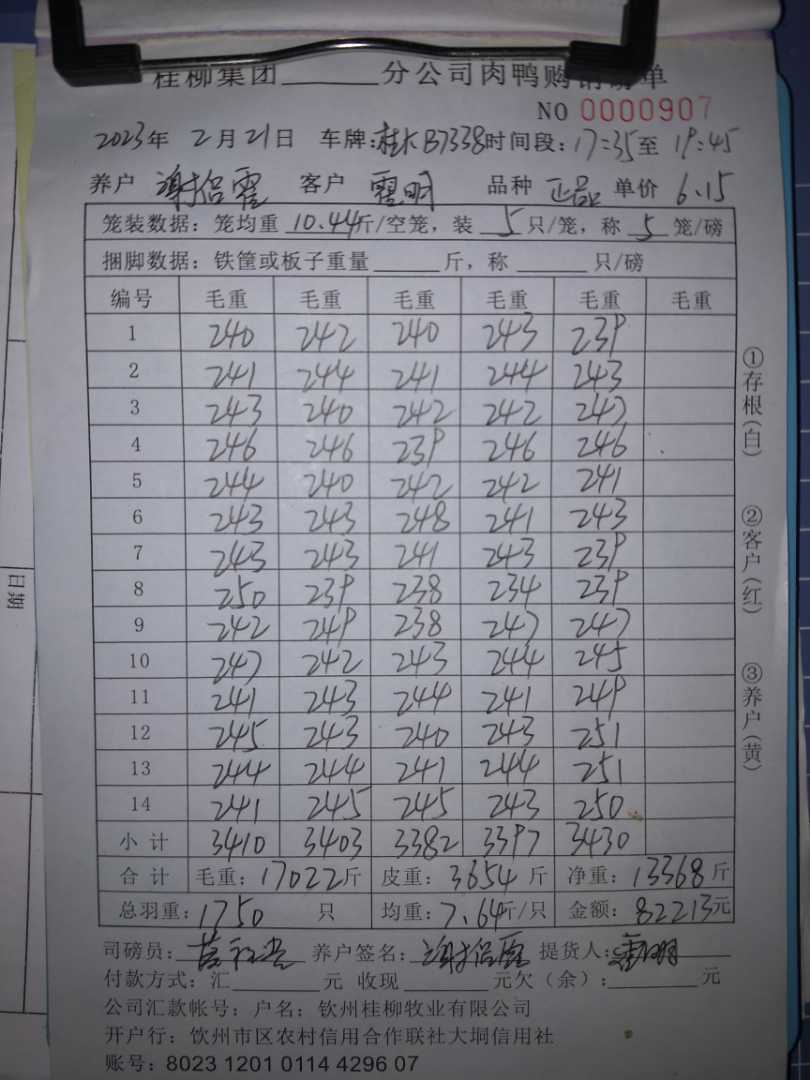 桂柳集团______分公司肉鸭购销磅单
NO 0000907
2023年 2月21日 车牌:桂K B7338 时间段:17:35至19:45
养户 谢侣霍 客户 霍明 品种 正品 单价 6.15
笼装数据：笼均重 10.44斤/空笼，装 5 只/笼，称 5 笼/磅
捆脚数据：铁筐或板子重量______斤，称______只/磅
编号 毛重 毛重 毛重 毛重 毛重 毛重
1 240 242 240 243 239
2 241 244 241 244 243
3 243 240 242 242 247
4 246 246 239 246 246
5 244 240 242 242 241
6 243 243 248 241 243
7 243 243 241 243 239
8 250 239 238 234 239
9 242 249 238 247 247
10 247 242 243 244 245
11 241 243 244 241 249
12 245 243 240 243 251
13 244 244 241 244 251
14 241 245 245 243 250
小计 3410 3403 3382 3397 3430
合计 毛重：17022斤 皮重：3654斤 净重：13368斤
总羽重：1750 只 均重：7.64斤/只 金额：82213元
司磅员： 养户签名：谢侣霍 提货人：霍明
付款方式：汇______元 收现______元欠（余）：______元
公司汇款帐号：户名：钦州桂柳牧业有限公司
开户行：钦州市区农村信用合作联社大垌信用社
账号：8023 1201 0114 4296 07
①存根（白）
②客户（红）
③养户（黄）
日期